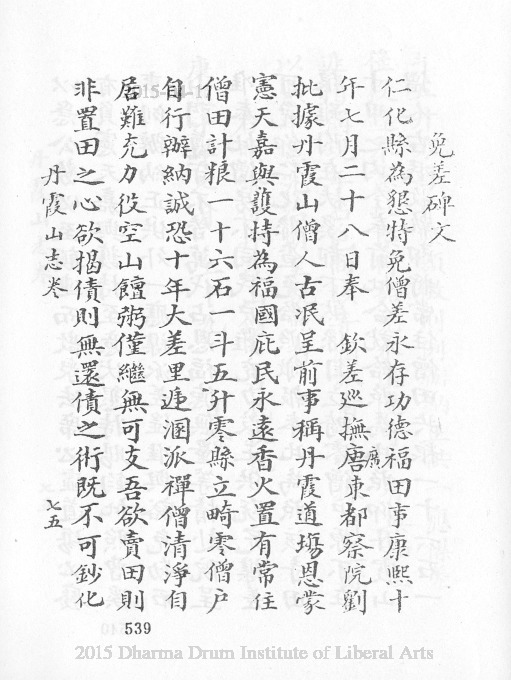 免差碑文
仁化縣為懇特免僧差永存功德福田事康熙十
年七月二十八日奉　欽差巡撫廣東都察院劉
批據丹霞山僧人古泯呈前事稱丹霞道場恩蒙
憲天嘉與護持為福國庇民永遠香火置有常住
僧田計粮一十六石一斗五升零縣立畸零僧戶
自行辦納誠恐十年大差里遞溷派禪僧清淨自
居難充力役空山饘粥僅繼無可支吾欲賣田則
非置田之心欲揭債則無還債之術既不可鈔化
丹霞山志卷
七五
539
2015 Dharma Drum Institute of Liberal Arts